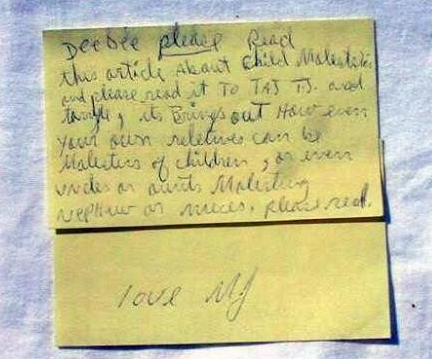 DeeDee please Read
this article About Child Molestation
and please read it TO TAJ TJ. and
taryll, its Brings out How even
your own reletives can be
Molesters of children, or even
uncles or aunts Molesting
nephew or nieces. please read.
love MJ